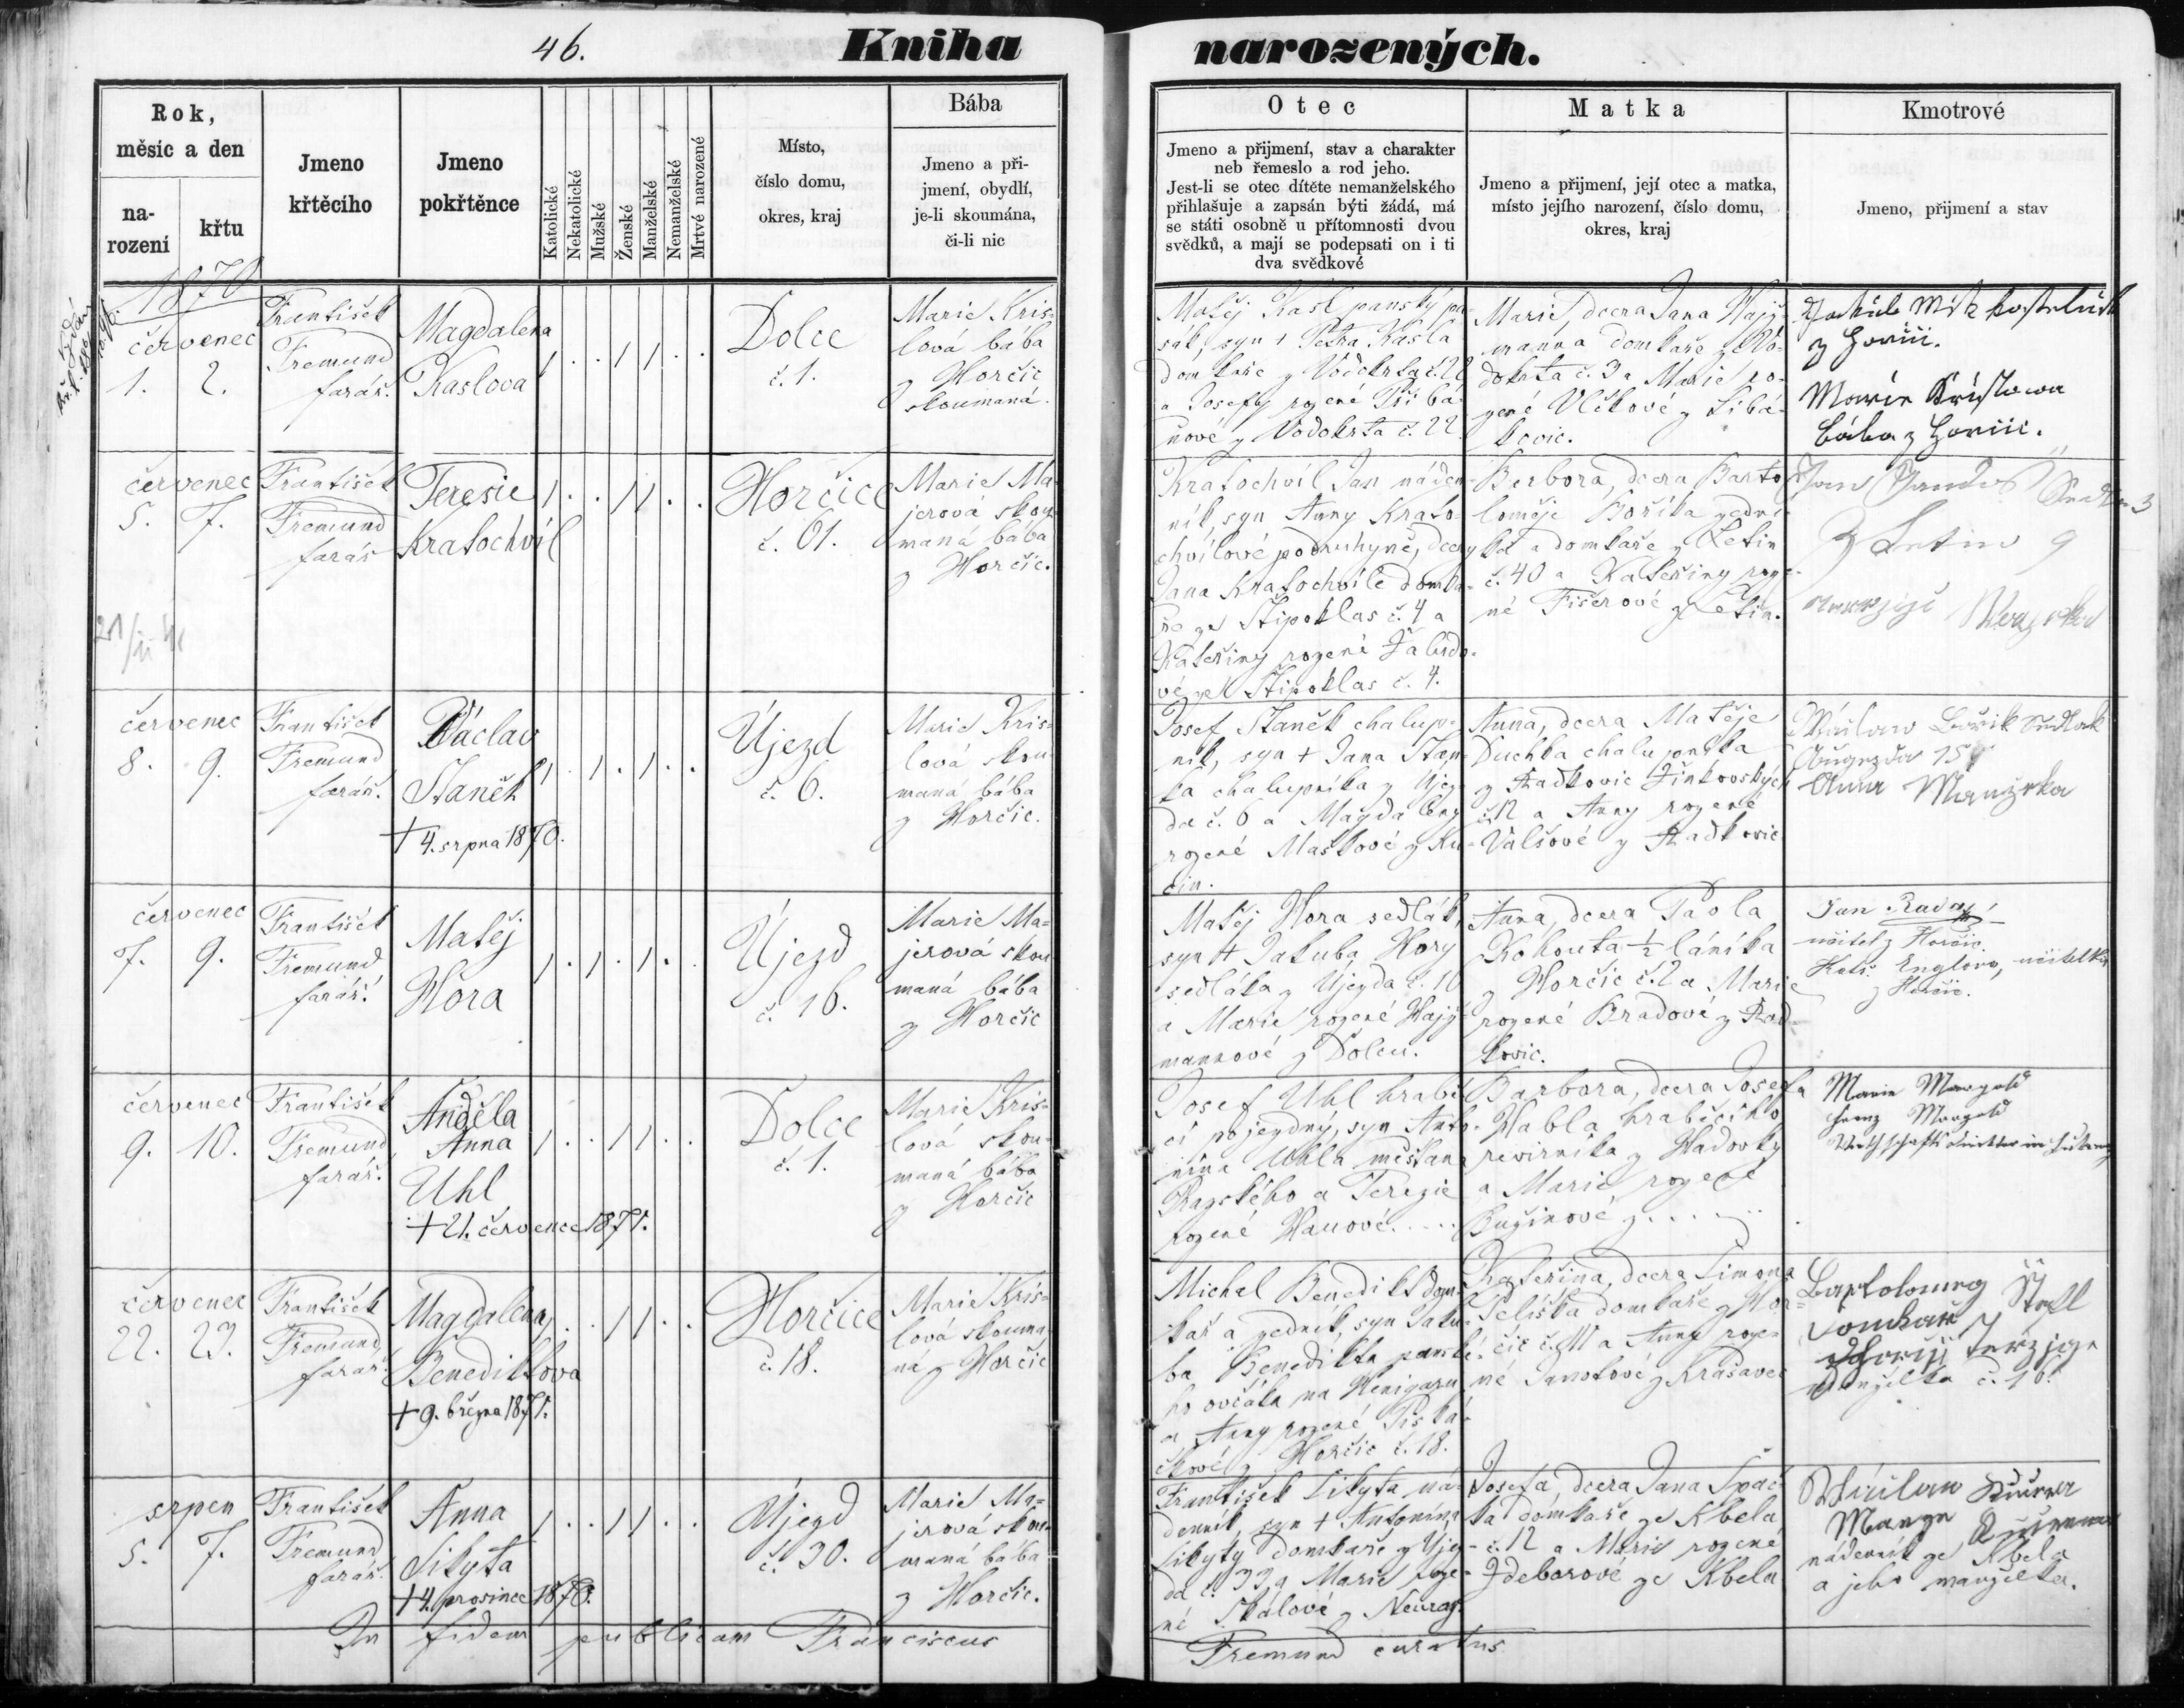 46.
Kniha
narozených.
Rok,
měsíc a den
na-
rození
křtu
Jmeno
křtěcího
Jmeno
pokřtěnce
Katolické
Nekatolické
Mužské
Ženské
Manželské
Nemanželské
Mrtvé narozené
Místo,
číslo domu,
okres, kraj
Bába
Jmeno a při-
jmení, obydlí,
je-li skoumána,
či-li nic
Otec
Jmeno a přijmení, stav a charakter
neb řemeslo a rod jeho.
Jest-li se otec dítěte nemanželského
přihlašuje a zapsán býti žádá, má
se státi osobně u přítomnosti dvou
svědků, a mají se podepsati on i ti
dva svědkové
Matka
Jmeno a přijmení, její otec a matka,
místo jejího narození, číslo domu,
okres, kraj
Kmotrové
Jmeno, přijmení a stav
1870
červenec
1. 2.
František
Fremund
farář.
Magdalena
Kaslova
Dolce
č. 1.
Marie Kris-
lová bába
z Horčic
skoumaná.
Matěj Kasl panský pa-
sák, syn † Petra Kasla
domkaře z Vodokrta č. 22
a Josefy rozené Při bá-
nové z Vodokrta č. 22
Marie, dcera Jana Hajž-
manna domkaře z Vo-
dokrta č. 3 a Marie ro-
zené Vlčkové z Libá-
kovic.
z Horčic.
Marie Krislowa
bába z Horčic.
červenec
5. 7.
František
Fremund
farář
Teresie
Kratochvíl
Horčice
č. 61.
Marie Ma-
jerová skou-
maná bába
z Horčic.
Kratochvíl Jan náden-
ník, syn Anny Krato-
chvílové podruhyně, dcery
Jana Kratochvíle domka-
ře ze Štipoklas č. 4 a
Kateřiny rozené Žaludo-
vé ze Štipoklas č. 4.
Berbora, dcera Barto
loměje Boříka zední-
ka a domkaře z Letin
č. 40 a Kateřiny roze-
né Fišerové z Letin.
Jan
Z Letin 9
červenec
8. 9.
František
Fremund
farář.
Václav
Staněk
† 4. srpna 1870.
Újezd
č. 6.
Marie Kris-
lová skou-
maná bába
z Horčic.
Josef Staněk chalup-
ník, syn † Jana Stan-
ka chalupníka z Újez-
da č. 6 a Magdaleny
rozené Maškové z Ku-
čin.
Anna, dcera Matěje
Duchka chalupníka
z Radkovic Žinkovských
č. 12 a Anny rozené
Valšové z Radkovic
Anna Manzelka
červenec
7. 9.
František
Fremund
farář.
Matěj
Hora
Újezd
č. 16.
Marie Ma-
jerová skou
maná bába
z Horčic
Matěj Hora sedlák,
syn † Jakuba Hory
sedláka z Újezda č. 10
a Marie rozené Hajž-
mannové z Dolcu.
Anna, dcera Paola
Kohouta ½ láníka
z Horčic č. 2 a Marie
rozené Bradové z Rad-
kovic.
Jan Rada,
učitel z Horčic.
Kateř. Englova, učitelka
z Horčic.
červenec
9. 10.
František
Fremund
farář.
Anděla
Anna
Uhl
† 21. července 1871.
Dolce
č. 1.
Marie Kris-
lová skou-
maná bába
z Horčic
Josef Uhl hrabě
cí pojezdný, syn Anto-
nína Uhla měšťana
a Terezie
rozené Hauové. ....
Barbora, dcera Josefa
Habla hraběcího
revírníka z Hádovky
a Marie rozené
z....
Marie Margold
Franz Margold
červenec
22. 23.
František
Fremund
farář.
Magdalena
Benediktova
† 9. března 1871.
Horčice
č. 18.
Marie Kris-
lová skouma-
ná z Horčic
Michel Benedikt dom-
kař a zedník, syn Jaku-
ba Benedikta panské-
ho ovčáka na Henigaru
a Anny rozené Piská-
čkové z Horčic č. 18.
Kateřina, dcera Simona
Pelíška domkaře z Hor-
čic č. 11 a Anny roze-
né Janotové z Krašovec
Bartolomeg Štefl
Domkař
č. 16.
srpen
5. 7.
František
Fremund
farář.
Anna
Sikyta
† 4. prosince 1870.
Újezd
č. 30.
Marie Ma-
jerová skou-
maná bába
z Horčic.
František Sikyta ná-
denník, syn † Antonína
Sikyty domkaře z Újez-
da č. 33 a Marie roze-
né Skálové z Neuraz.
Josefa, dcera Jana Špač
ka domkaře ze Kbela
č. 12 a Marie rozené
Zdeborové ze Kbela
nádeník ze Kbela
a jeho manželka.
In fidem publicam Franciscus
Fremund curatus.